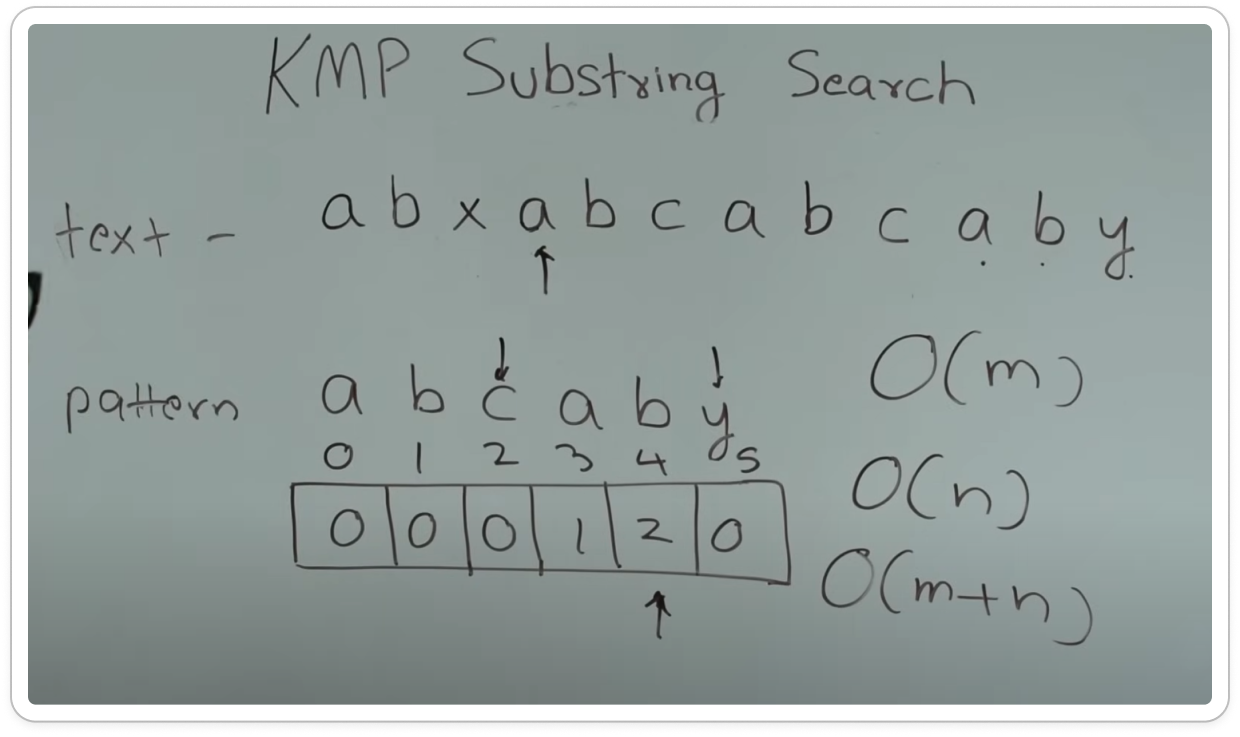 KMP Substring Search
text - a b x a b c a b c a b y
↑
↓ ↓
pattern a b c a b y
O(m)
0 1 2 3 4 5
0 0 0 1 2 0
O(n)
↑
O(m+n)